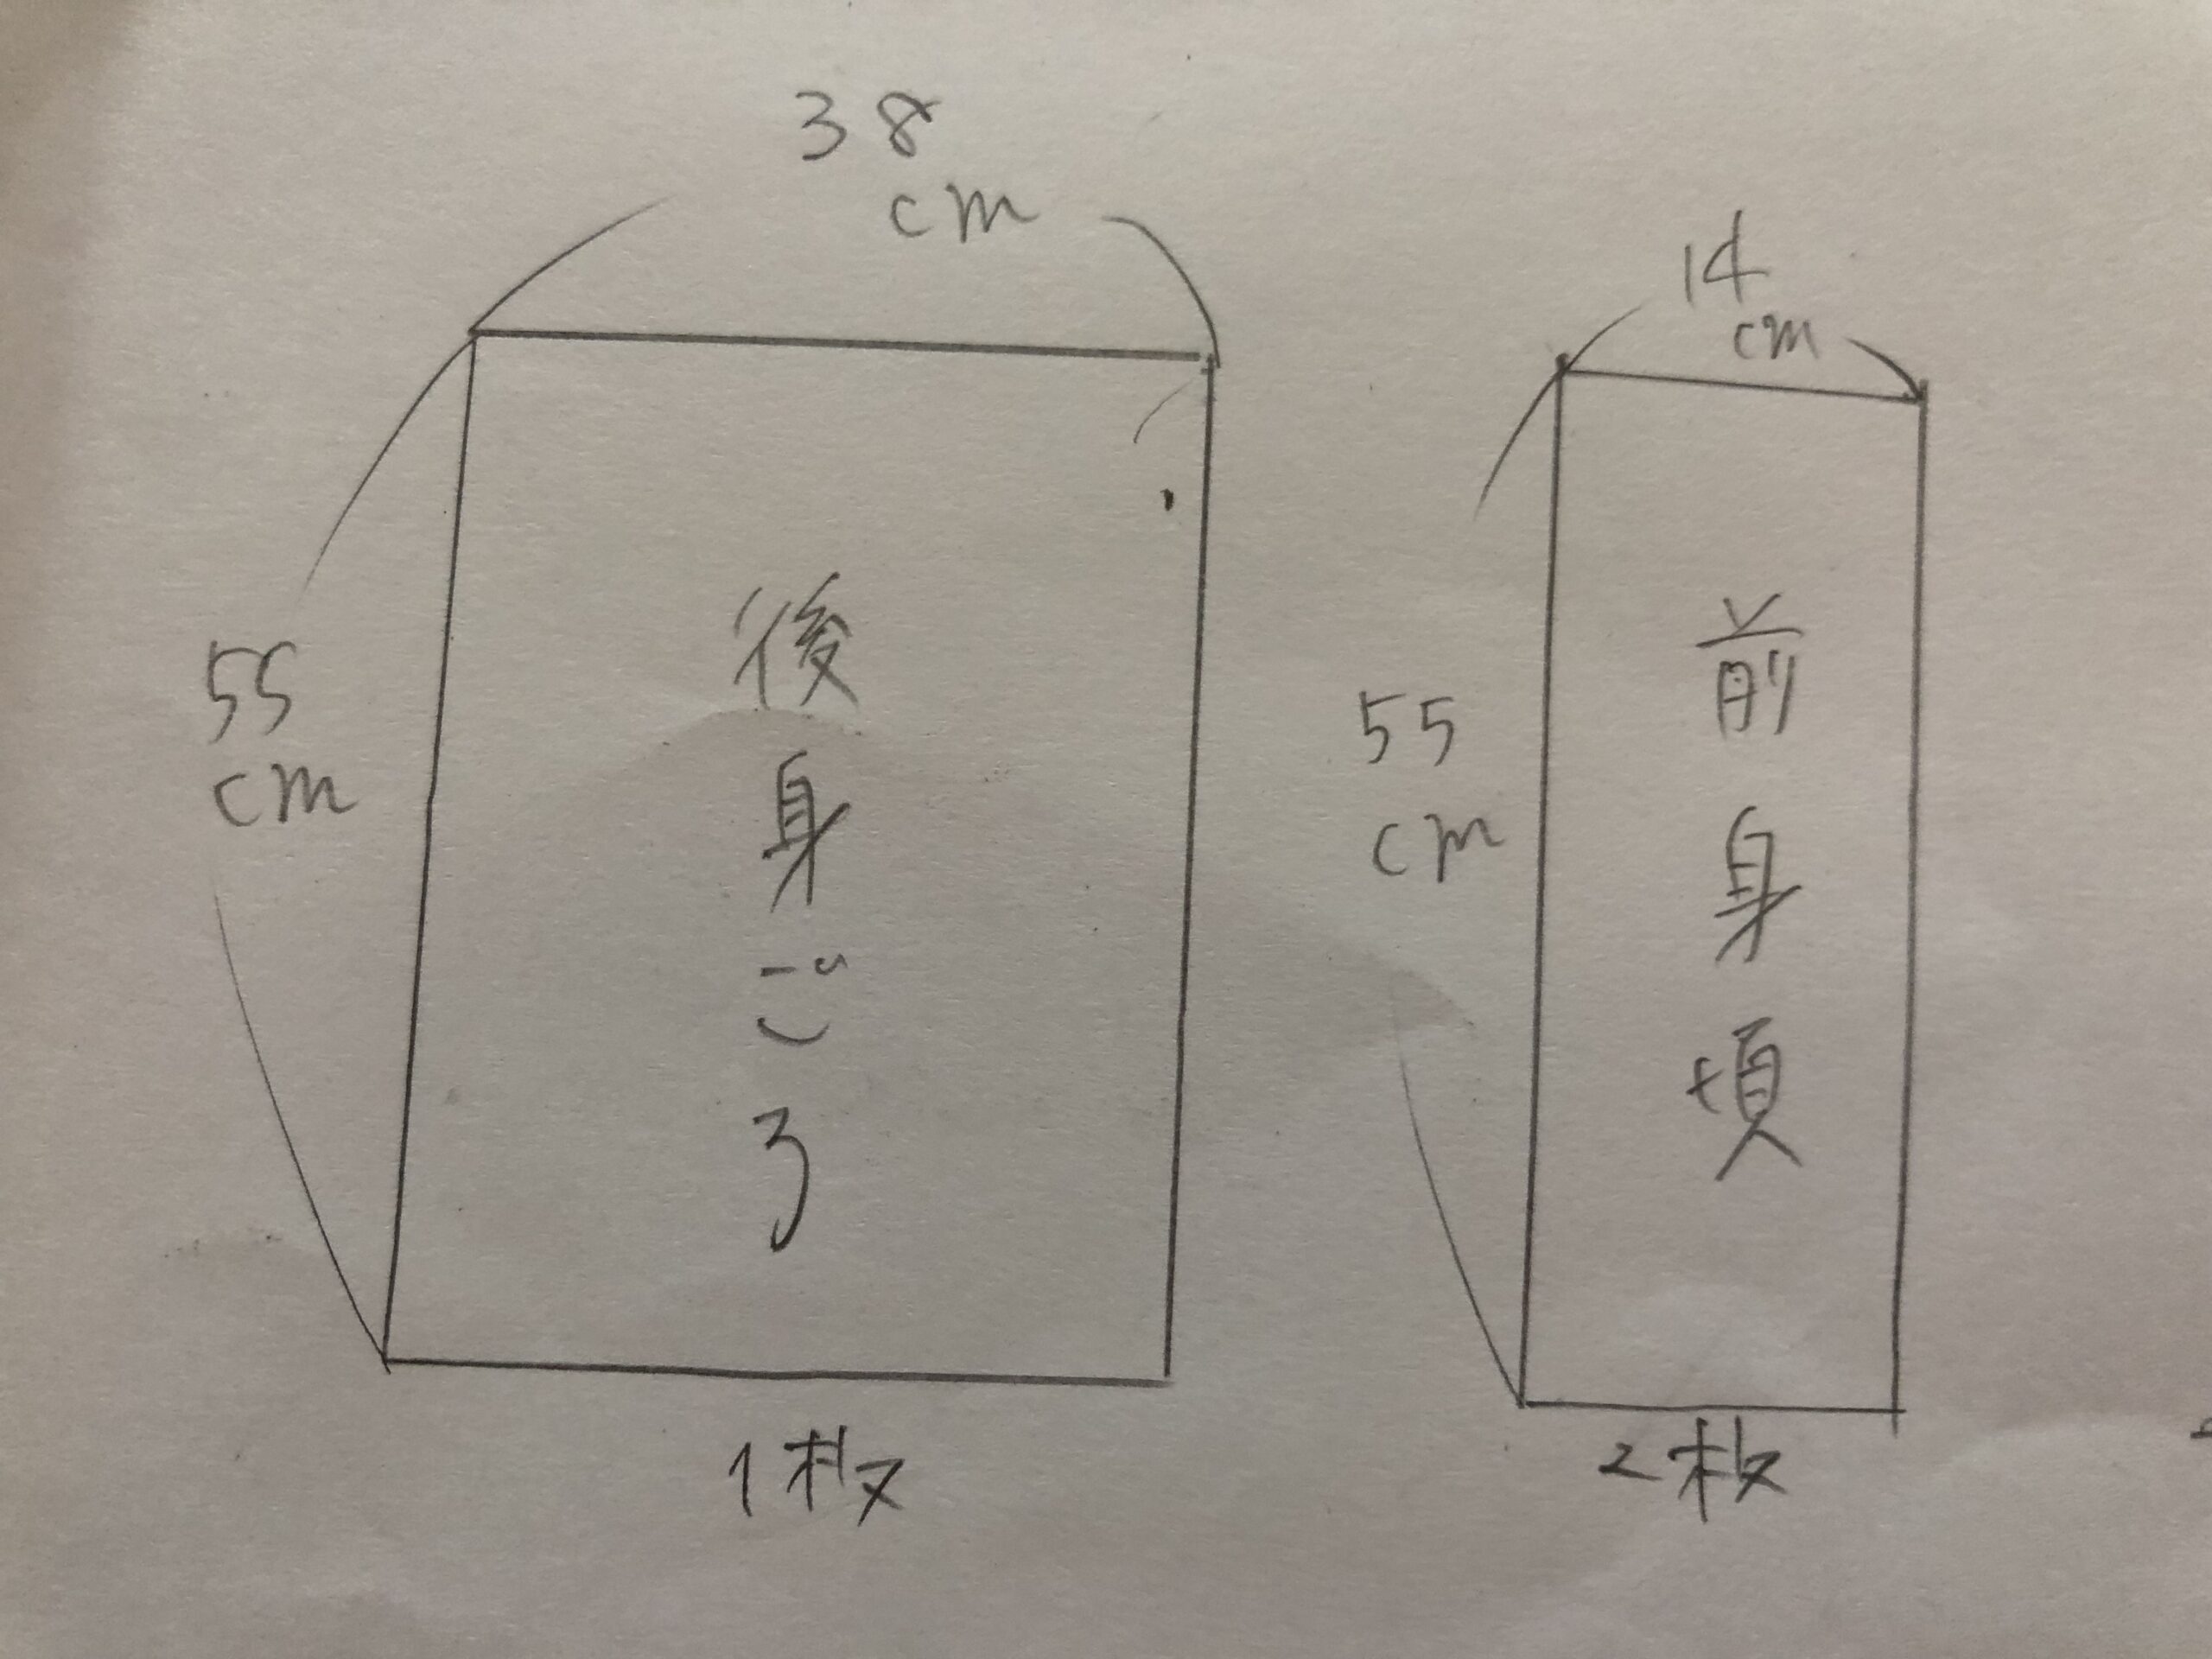 38
cm
55
cm
後身ごろ
1枚
14
cm
55
cm
前身頃
2枚